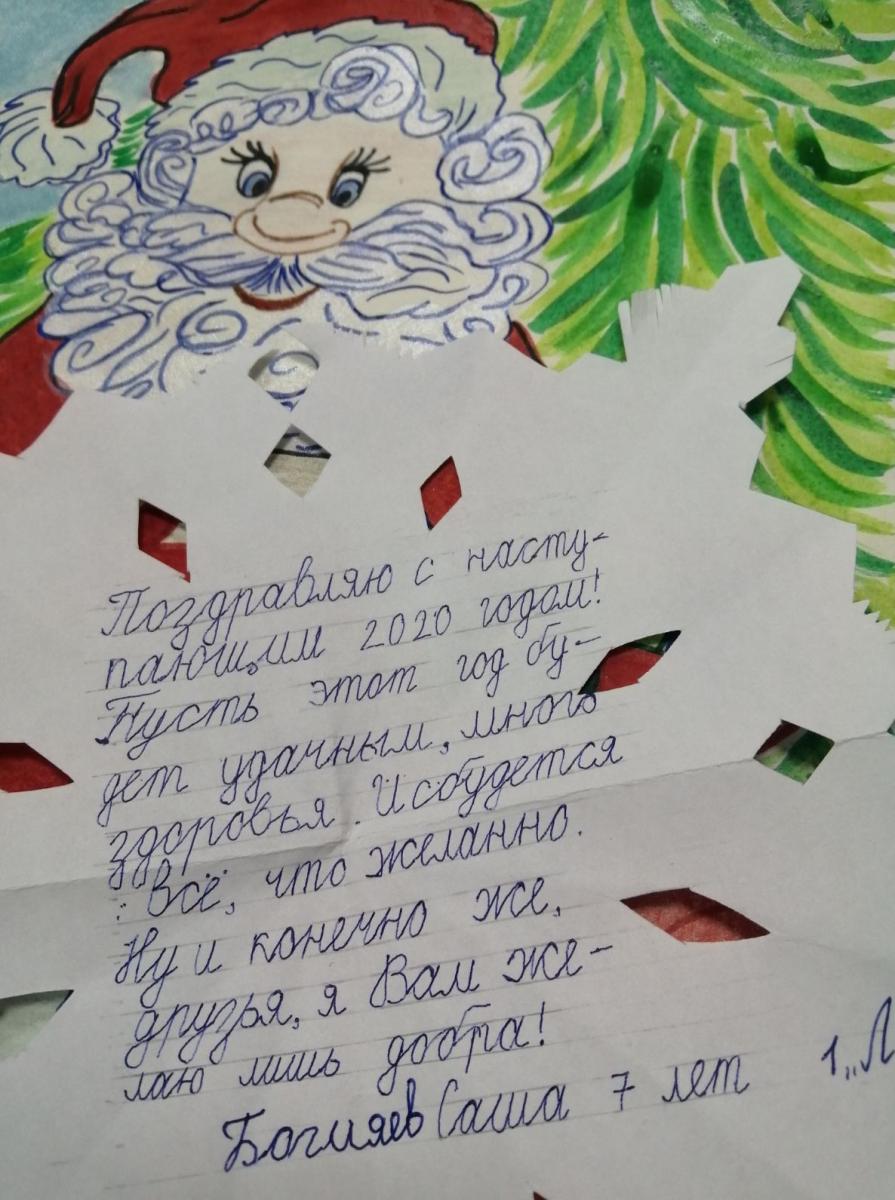 Поздравляю с насту-
пающим 2020 годом!
Пусть этот год бу-
дет удачным, много
здоровья. И сбудется
Всё, что желанно.
Ну и конечно же,
друзья, я Вам же-
лаю лишь добра!
Саша 7 лет 1 „Л